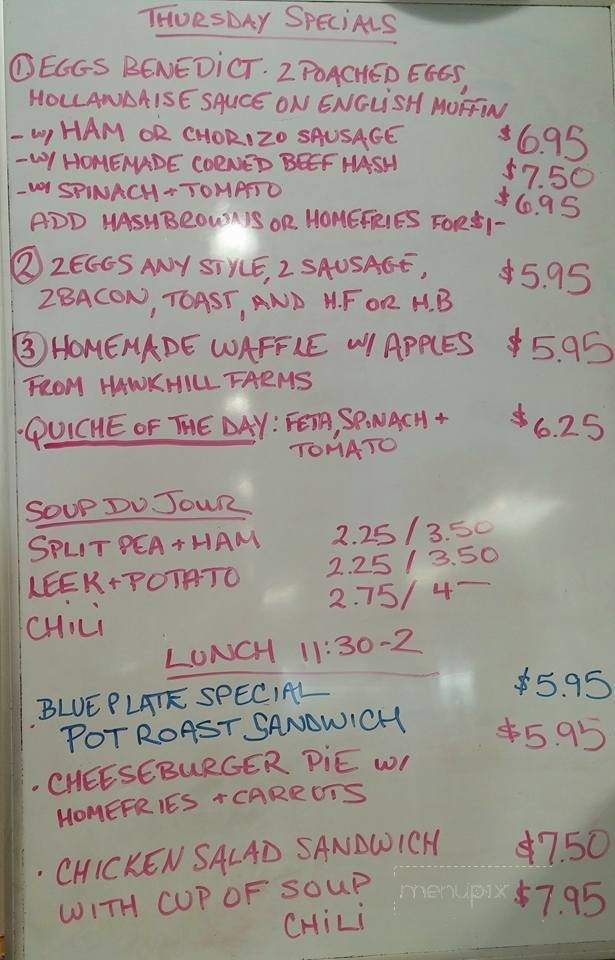 THURSDAY SPECIALS
① EGGS BENEDICT. 2 POACHED EGGS,
HOLLANDAISE SAUCE ON ENGLISH MUFFIN
- w/ HAM OR CHORIZO SAUSAGE $6.95
- w/ HOMEMADE CORNED BEEF HASH $7.50
- w/ SPINACH + TOMATO $6.95
ADD HASHBROWNS OR HOMEFRIES FOR $1-
② 2 EGGS ANY STYLE, 2 SAUSAGE, $5.95
2 BACON, TOAST, AND H.F OR H.B
③ HOMEMADE WAFFLE W/ APPLES $5.95
FROM HAWKHILL FARMS
· QUICHE OF THE DAY: FETA, SPINACH + $6.25
TOMATO
SOUP DU JOUR
SPLIT PEA + HAM 2.25 / 3.50
LEEK + POTATO 2.25 / 3.50
CHILI 2.75 / 4—
LUNCH 11:30-2
BLUE PLATE SPECIAL $5.95
· POT ROAST SANDWICH
· CHEESEBURGER PIE w/ $5.95
HOMEFRIES + CARROTS
· CHICKEN SALAD SANDWICH $7.50
WITH CUP OF SOUP
CHILI $7.95
menupix